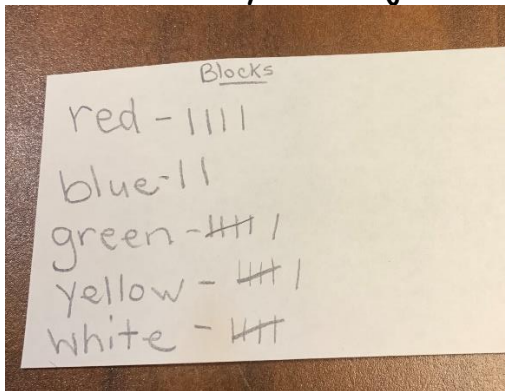 Blocks
red - ||||
blue - ||
green - 卌 |
yellow - 卌 |
white - 卌